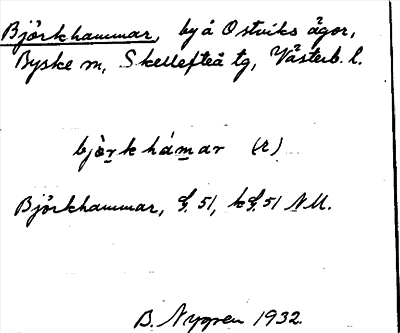 Björkhammar, by å Ostviks ägor,
Byske sn, Skellefteå tg, Västerb. l.
bjò̱rkhámar (r)
Björkhammar, 51, 51 NM.
B. Nygren 1932.